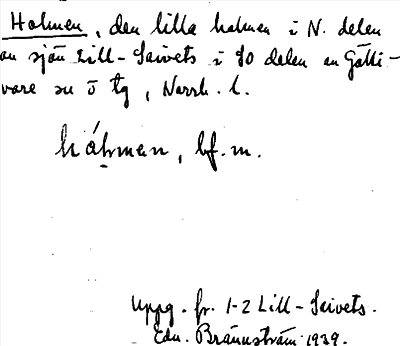 Holmen, den lilla holmen i N. delen
av sjön Lill-Saivets i SO delen av Gälli-
vare sn o tg, Norrb. l.
háhmen, bf. m.
Uppg. fr. 1-2 Lill-Saivets.
Edv. Brännström 1939.